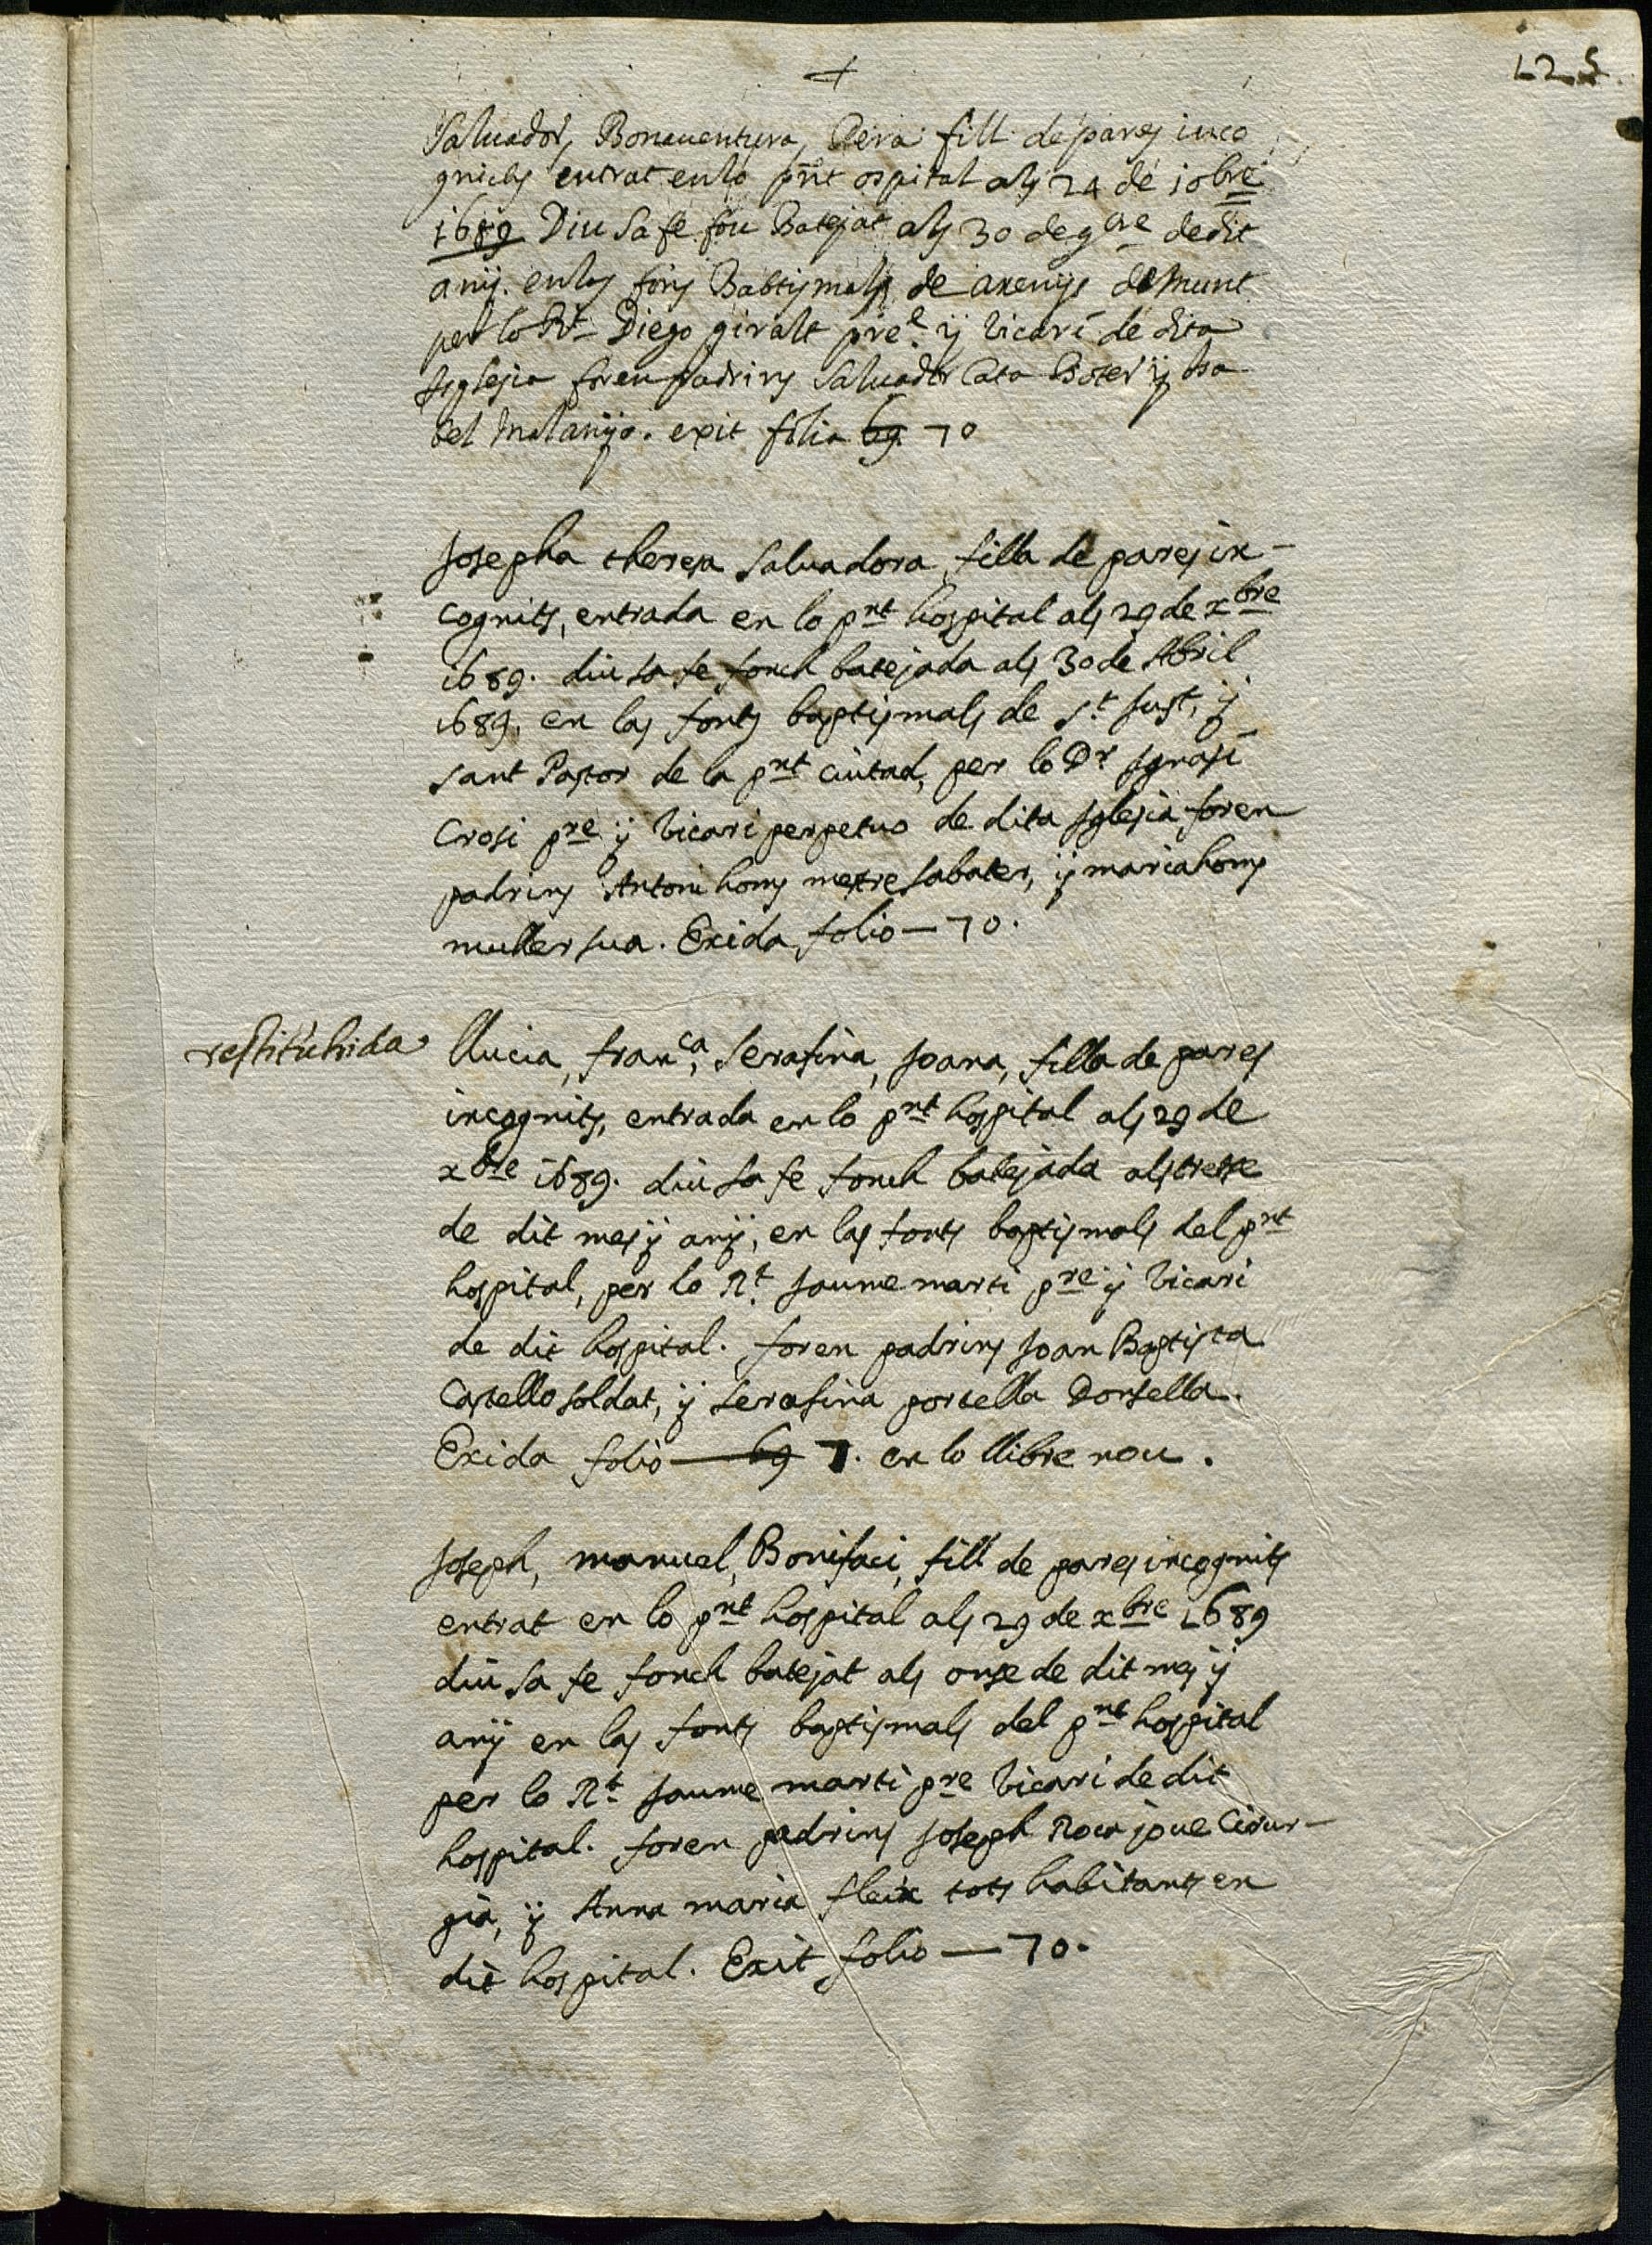 125
+
Saluador, Bonauentura, Pera fill de pares inco
gnicts entrat en lo pñt ospital als 24 de 10bre
1689 Diu sa fe fou Batejat als 30 de 9bre de dit
anÿ. en las fons Babtismals de arenÿs de Munt
per lo Rt Diego giralt pre. ÿ vicari de dita
Isglesia foren padrins Saluador Cata Boter ÿ Isa
bel Malanÿo. exit folio 69 70
Josepha theresa Saluadora, filla de pares in-
cognits, entrada en lo pnt hospital als 29 de xbre
1689. diu sa fe fonch batejada als 30 de Abril
1689. en las fonts baptismals de St Just, ÿ
Sant Pastor de la pnt Ciutad, per lo Dr Ignasi
Crosi pre ÿ vicari perpetuo de dita Iglesia foren
padrins Antoni homs mestre sabater, ÿ maria homs
muller sua. Exida folio — 70.
restituhida
Llucia, franca, Serafina, Joana, filla de pares
incognits, entrada en lo pnt hospital als 29 de
xbre 1689. diu sa fe fonch batejada als tretse
de dit mes ÿ anÿ, en las fonts baptismals del pnt
hospital, per lo Rt. Jaume marti pre ÿ vicari
de dit hospital. foren padrins Joan Baptista
Castello soldat, ÿ Serafina porcella Donsella.
Exida folio — 69 7. en lo llibre nou.
Joseph, manuel, Bonifaci, fill de pares incognits
entrat en lo pnt hospital als 29 de xbre 1689
diu sa fe fonch batejat als onse de dit mes ÿ
anÿ en las fonts baptismals del pnt hospital
per lo Rt. Jaume marti pre vicari de dit
hospital. foren padrins Joseph Roca joue Cirur-
gia, ÿ Anna maria fleix tots habitants en
dit hospital. Exit folio — 70.